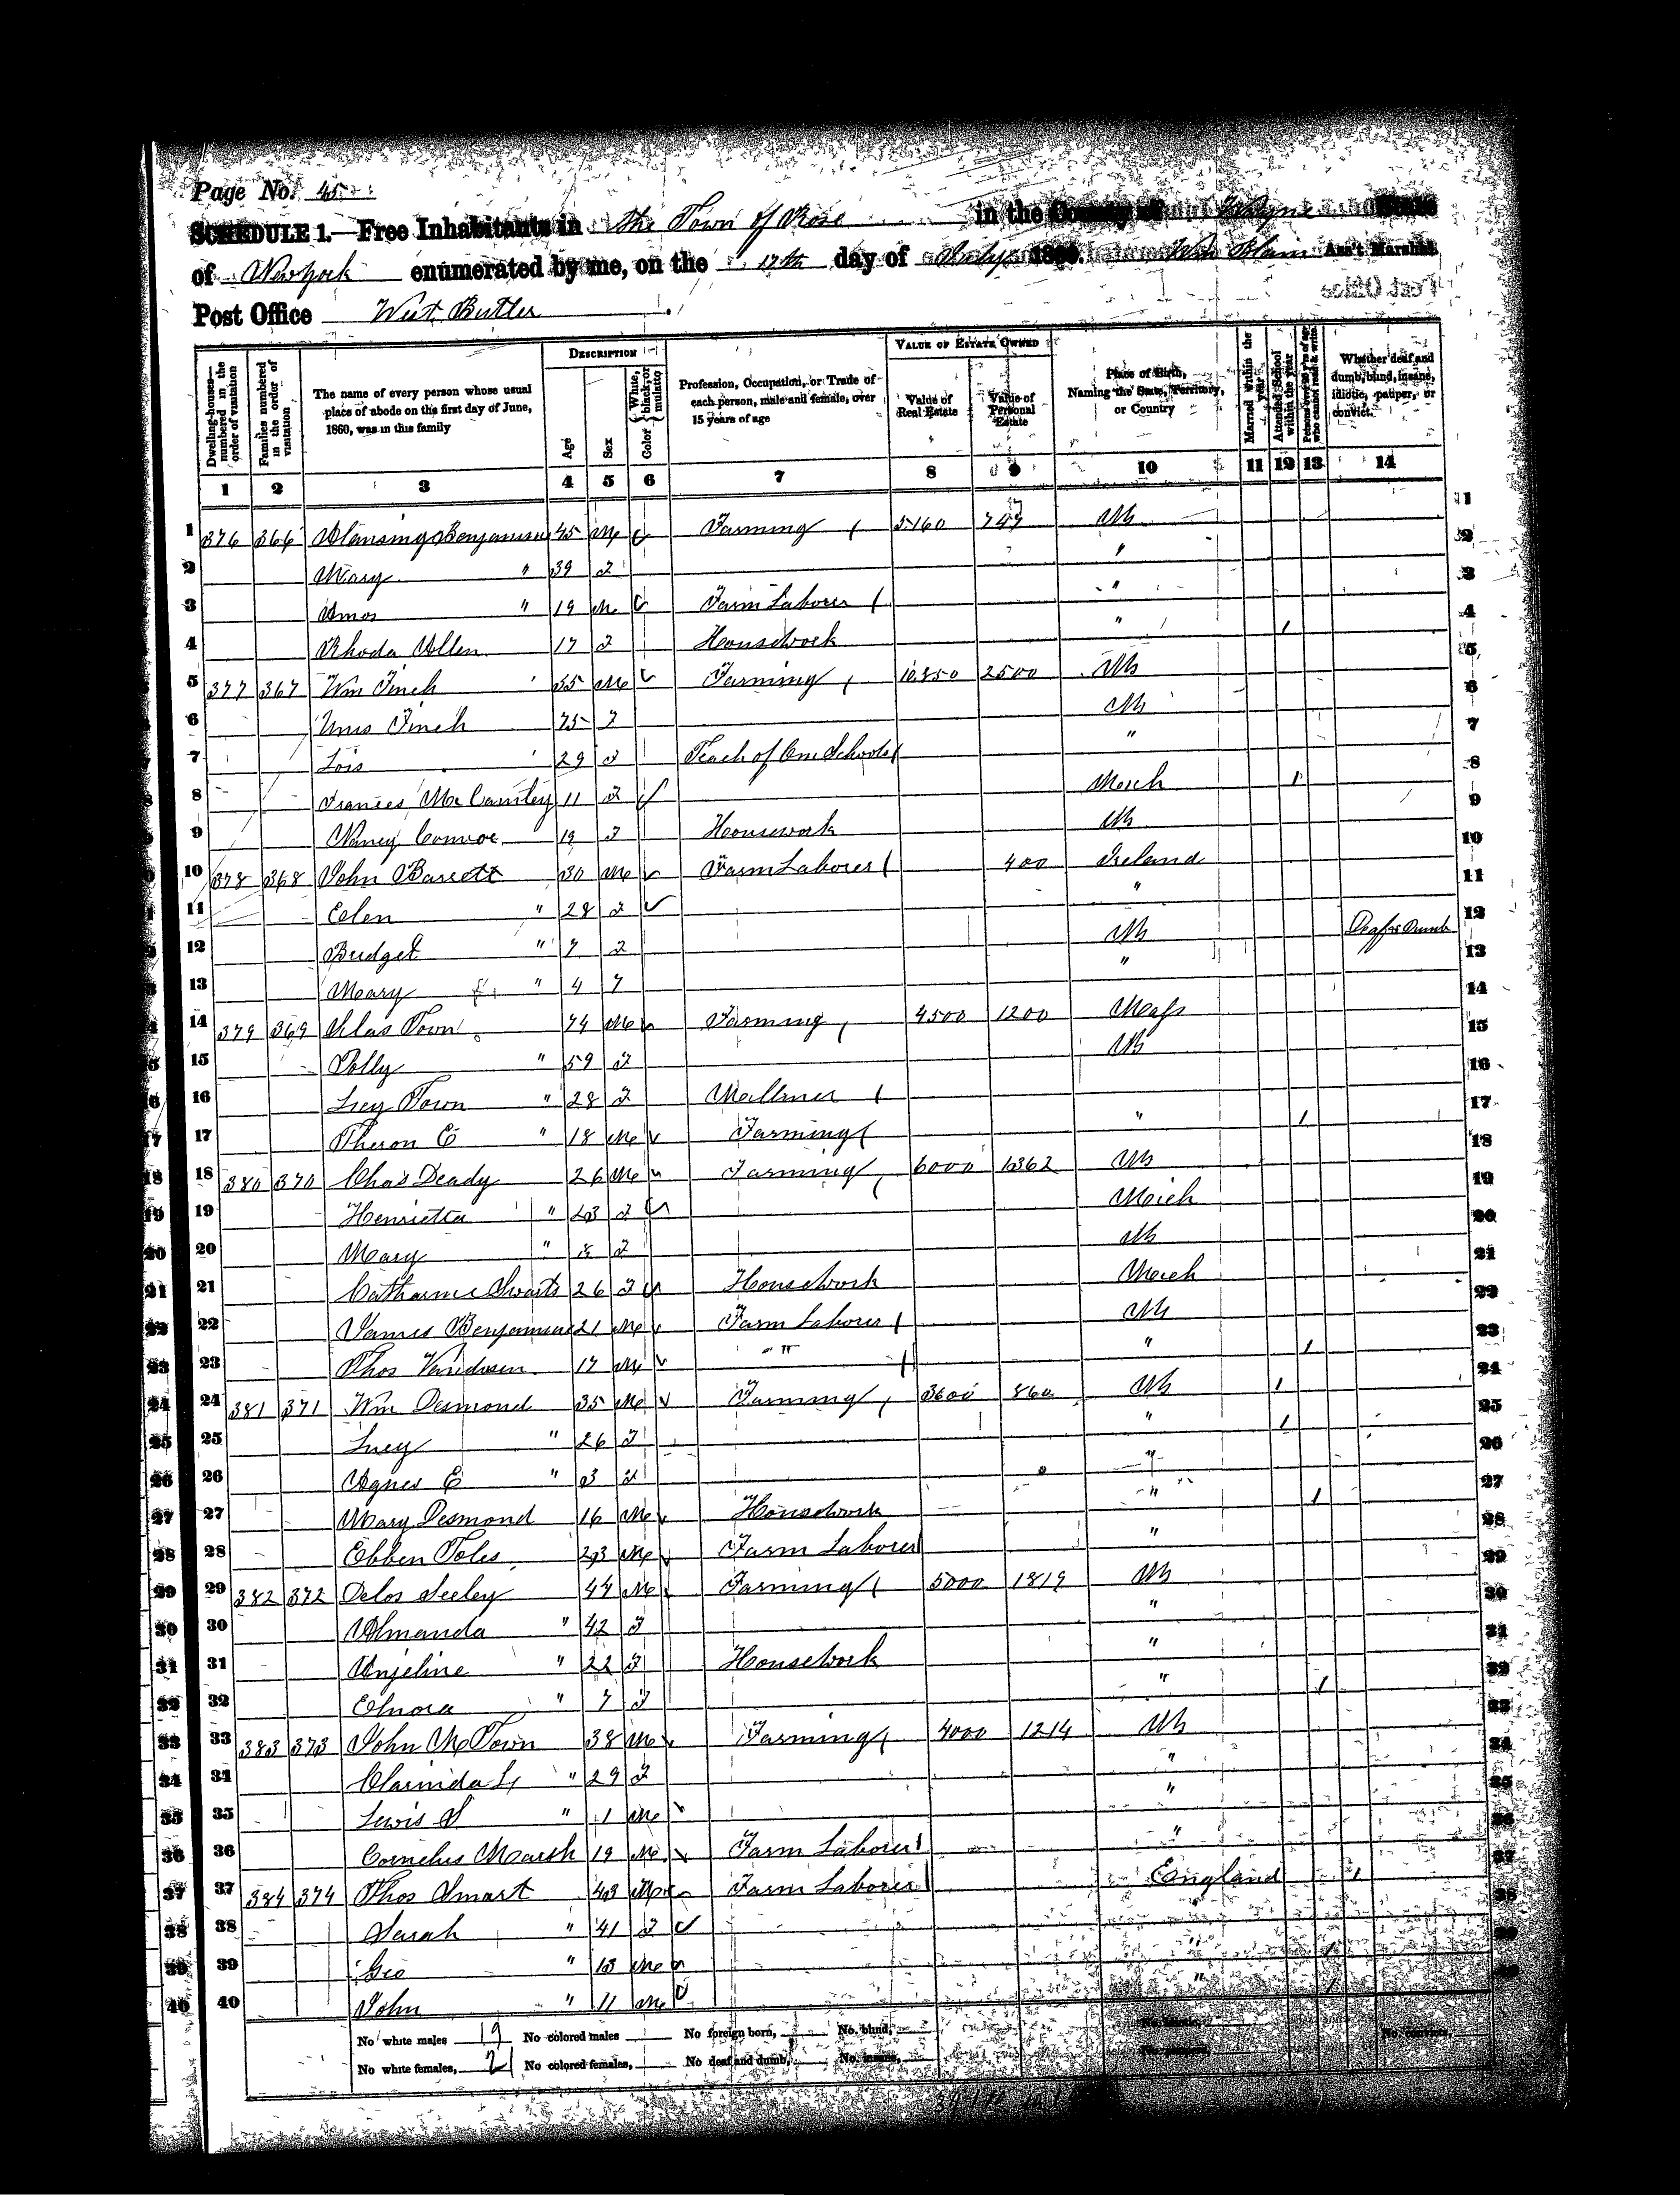 Page No. 45
SCHEDULE 1.—Free Inhabitants in the Town of Rose in the County of Wayne State
of Newyork enumerated by me, on the 17th day of July 1860. Wm Blaim Ass't Marshal
Post Office West Butler
Post Office
DESCRIPTION
VALUE OF ESTATE OWNED
Dwelling-houses—numbered in the order of visitation
Families numbered in the order of visitation
The name of every person whose usual place of abode on the first day of June, 1860, was in this family
Age
Sex
Color { White, black, or mulatto
Profession, Occupation, or Trade of each person, male and female, over 15 years of age
Value of Real Estate
Value of Personal Estate
Place of Birth, Naming the State, Territory, or Country
Married within the year
Attended School within the year
Persons over 20 y'rs of age who cannot read & write
Whether deaf and dumb, blind, insane, idiotic, pauper, or convict.
1 2 3 4 5 6 7 8 9 10 11 12 13 14
1 376 366 Benjamin 45 M Farming 5160 747 1
2 Mary " 39 " 2
3 Amos " 19 M Farm Laborer " 3
4 Rhoda Allen 17 Housework " 1 4
5 377 367 Wm Finch 35 M Farming 10,850 2500 5
6 Unis Finch 75 6
7 Lois 29 Teach of Com Schools " 7
8 Frances 11 Mich 1 8
9 Nancy Conroe 19 Housework 9
10 378 368 John Barrett 30 M Farm Laborer 400 Ireland 10
11 Ellen " 28 " 11
12 Bridget " 7 Deaf & Dumb 12
13 Mary " 4 " 13
14 379 369 Silas Town 74 M Farming 4500 1200 Mass 14
15 Polly " 59 15
16 Lucy Town " 28 16
17 Theron E " 18 M Farming " 1 17
18 380 370 Chas Deady 26 M Farming 6000 1362 18
19 Henrietta " 23 Mich 19
20 Mary " 20
21 Catharine Swarts 26 Housework Mich 21
22 James Benjamin 21 M Farm Laborer 22
23 Thos 17 M " " " 1 23
24 381 371 Wm Desmond 35 M Farming 3600 860 1 24
25 Lucy " 26 " 1 25
26 Agnes E " 3 " 26
27 Mary Desmond 16 M Housework " 1 27
28 Ebben Toles 23 M Farm Laborer " 28
29 382 372 Delos Seeley 44 M Farming 5000 1819 29
30 Almanda " 42 " 30
31 Anjeline " 22 Housework " 31
32 Elnora " 7 " 1 32
33 383 373 John M Town 38 M Farming 4000 1214 33
34 Clarinda L " 29 " 34
35 Lewis S " 1 M " 35
36 Cornelius Marsh 19 M Farm Laborer " 36
37 384 374 Thos Smart 43 M Farm Laborer England 1 37
38 Sarah " 41 38
39 Geo " 13 M " 1 39
40 John " 11 M " 1 40
No white males 19 No colored males No foreign born, No. blind,
No white females, 21 No colored females, No deaf and dumb, No. insane, No. convicts,